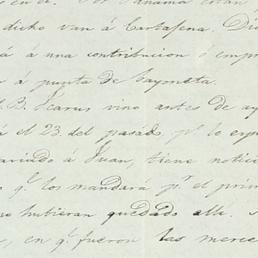 Panamá están
dicho van á Cartagena. Di
á á una contribucion ó empr
r á punta de bayoneta.
l B. Icarus vino antes de ay
á el 23 del pasado, pr. lo esp
arido á Juan, tiene notici
s qe. los mandará pr. el prim
se hubieran quedado allí. S
e, en qe. fueron las merce